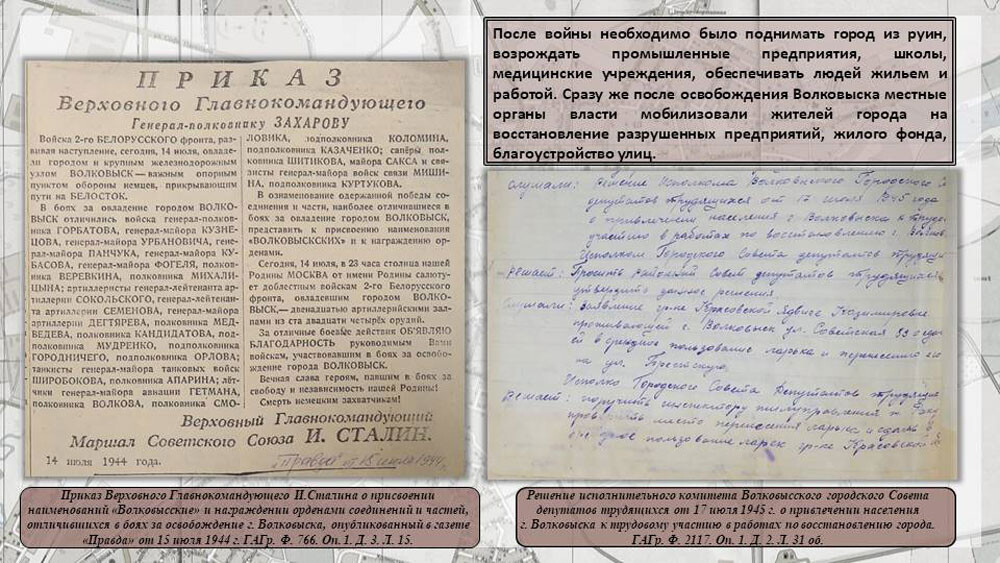 ПРИКАЗ
Верховного Главнокомандующего
Генерал-полковнику ЗАХАРОВУ
Войска 2-го БЕЛОРУССКОГО фронта, раз-
вивая наступление, сегодня, 14 июля, овладе-
ли городом и крупным железнодорожным
узлом ВОЛКОВЫСК — важным опорным
пунктом обороны немцев, прикрывающим
пути на БЕЛОСТОК.
В боях за овладение городом ВОЛКО-
ВЫСК отличились войска генерал-полков-
ника ГОРБАТОВА, генерал-майора КУЗНЕ-
ЦОВА, генерал-майора УРБАНОВИЧА, гене-
рал-майора ПАНЧУКА, генерал-майора КУ-
БАСОВА, генерал-майора ФОГЕЛЯ, полков-
ника ВЕРЕВКИНА, полковника МИХАЛИ-
ЦЫНА; артиллеристы генерал-лейтенанта ар-
тиллерии СОКОЛЬСКОГО, генерал-лейтенан-
та артиллерии СЕМЕНОВА, генерал-майора
артиллерии ДЕГТЯРЕВА, полковника МЕД-
ВЕДЕВА, полковника КАНДИДАТОВА, под-
полковника МУДРЕНКО, подполковника
ГОРОДНИЧЕГО, подполковника ОРЛОВА;
танкисты генерал-майора танковых войск
ШИРОБОКОВА, полковника АПАРИНА; лёт-
чики генерал-майора авиации ГЕТМАНА,
полковника ВОЛКОВА, полковника СМО-
ЛОВИКА, подполковника КОЛОМИНА,
подполковника КАЗАЧЕНКО; сапёры пол-
ковника ШИТИКОВА, майора САКСА и свя-
зисты генерал-майора войск связи МИШИ-
НА, подполковника КУРТУКОВА.
В ознаменование одержанной победы со-
единения и части, наиболее отличившиеся в
боях за овладение городом ВОЛКОВЫСК,
представить к присвоению наименования
«ВОЛКОВЫСКСКИХ» и к награждению ор-
денами.
Сегодня, 14 июля, в 23 часа столица нашей
Родины МОСКВА от имени Родины салютует
доблестным войскам 2-го Белорусского
фронта, овладевшим городом ВОЛКО-
ВЫСК, — двенадцатью артиллерийскими зал-
пами из ста двадцати четырёх орудий.
За отличные боевые действия ОБ'ЯВЛЯЮ
БЛАГОДАРНОСТЬ руководимым Вами
войскам, участвовавшим в боях за освобо-
ждение города ВОЛКОВЫСК.
Вечная слава героям, павшим в боях за
свободу и независимость нашей Родины!
Смерть немецким захватчикам!
Верховный Главнокомандующий
Маршал Советского Союза И. СТАЛИН.
14 июля 1944 года.
"Правда" от 15 июля 1944 г.
Приказ Верховного Главнокомандующего И.Сталина о присвоении
наименований «Волковысские» и награждении орденами соединений и частей,
отличившихся в боях за освобождение г. Волковыска, опубликованный в газете
«Правда» от 15 июля 1944 г. ГАГр. Ф. 766. Оп. 1. Д. 3. Л. 15.
После войны необходимо было поднимать город из руин,
возрождать промышленные предприятия, школы,
медицинские учреждения, обеспечивать людей жильем и
работой. Сразу же после освобождения Волковыска местные
органы власти мобилизовали жителей города на
восстановление разрушенных предприятий, жилого фонда,
благоустройство улиц.
Слушали: Решение Исполкома Волковысского Городского
депутатов трудящихся от 17 июля 1945 года
о привлечении населения г. Волковыска к трудо
участию в работах по восстановлению г.
Исполком Городского Совета депутатов
Решает: Просить Районный Совет депутатов трудящихся
утвердить данное решение.
Слушали: Заявление гр-ке Красовской Ядвиге Казимировне
проживающей г. Волковыск ул. Советская 53 о сда
ей в срочное пользование ларька и перенесению его
на ул. Брестскую.
Исполко Городского Совета Депутатов трудящие
Решает: поручить инспектору жилуправления т.
место перенесения ларька и сдать в
срочное пользование ларек гр-ке Красовской
Решение исполнительного комитета Волковысского городского Совета
депутатов трудящихся от 17 июля 1945 г. о привлечении населения
г. Волковыска к трудовому участию в работах по восстановлению города.
ГАГр. Ф. 2117. Оп. 1. Д. 2. Л. 31 об.